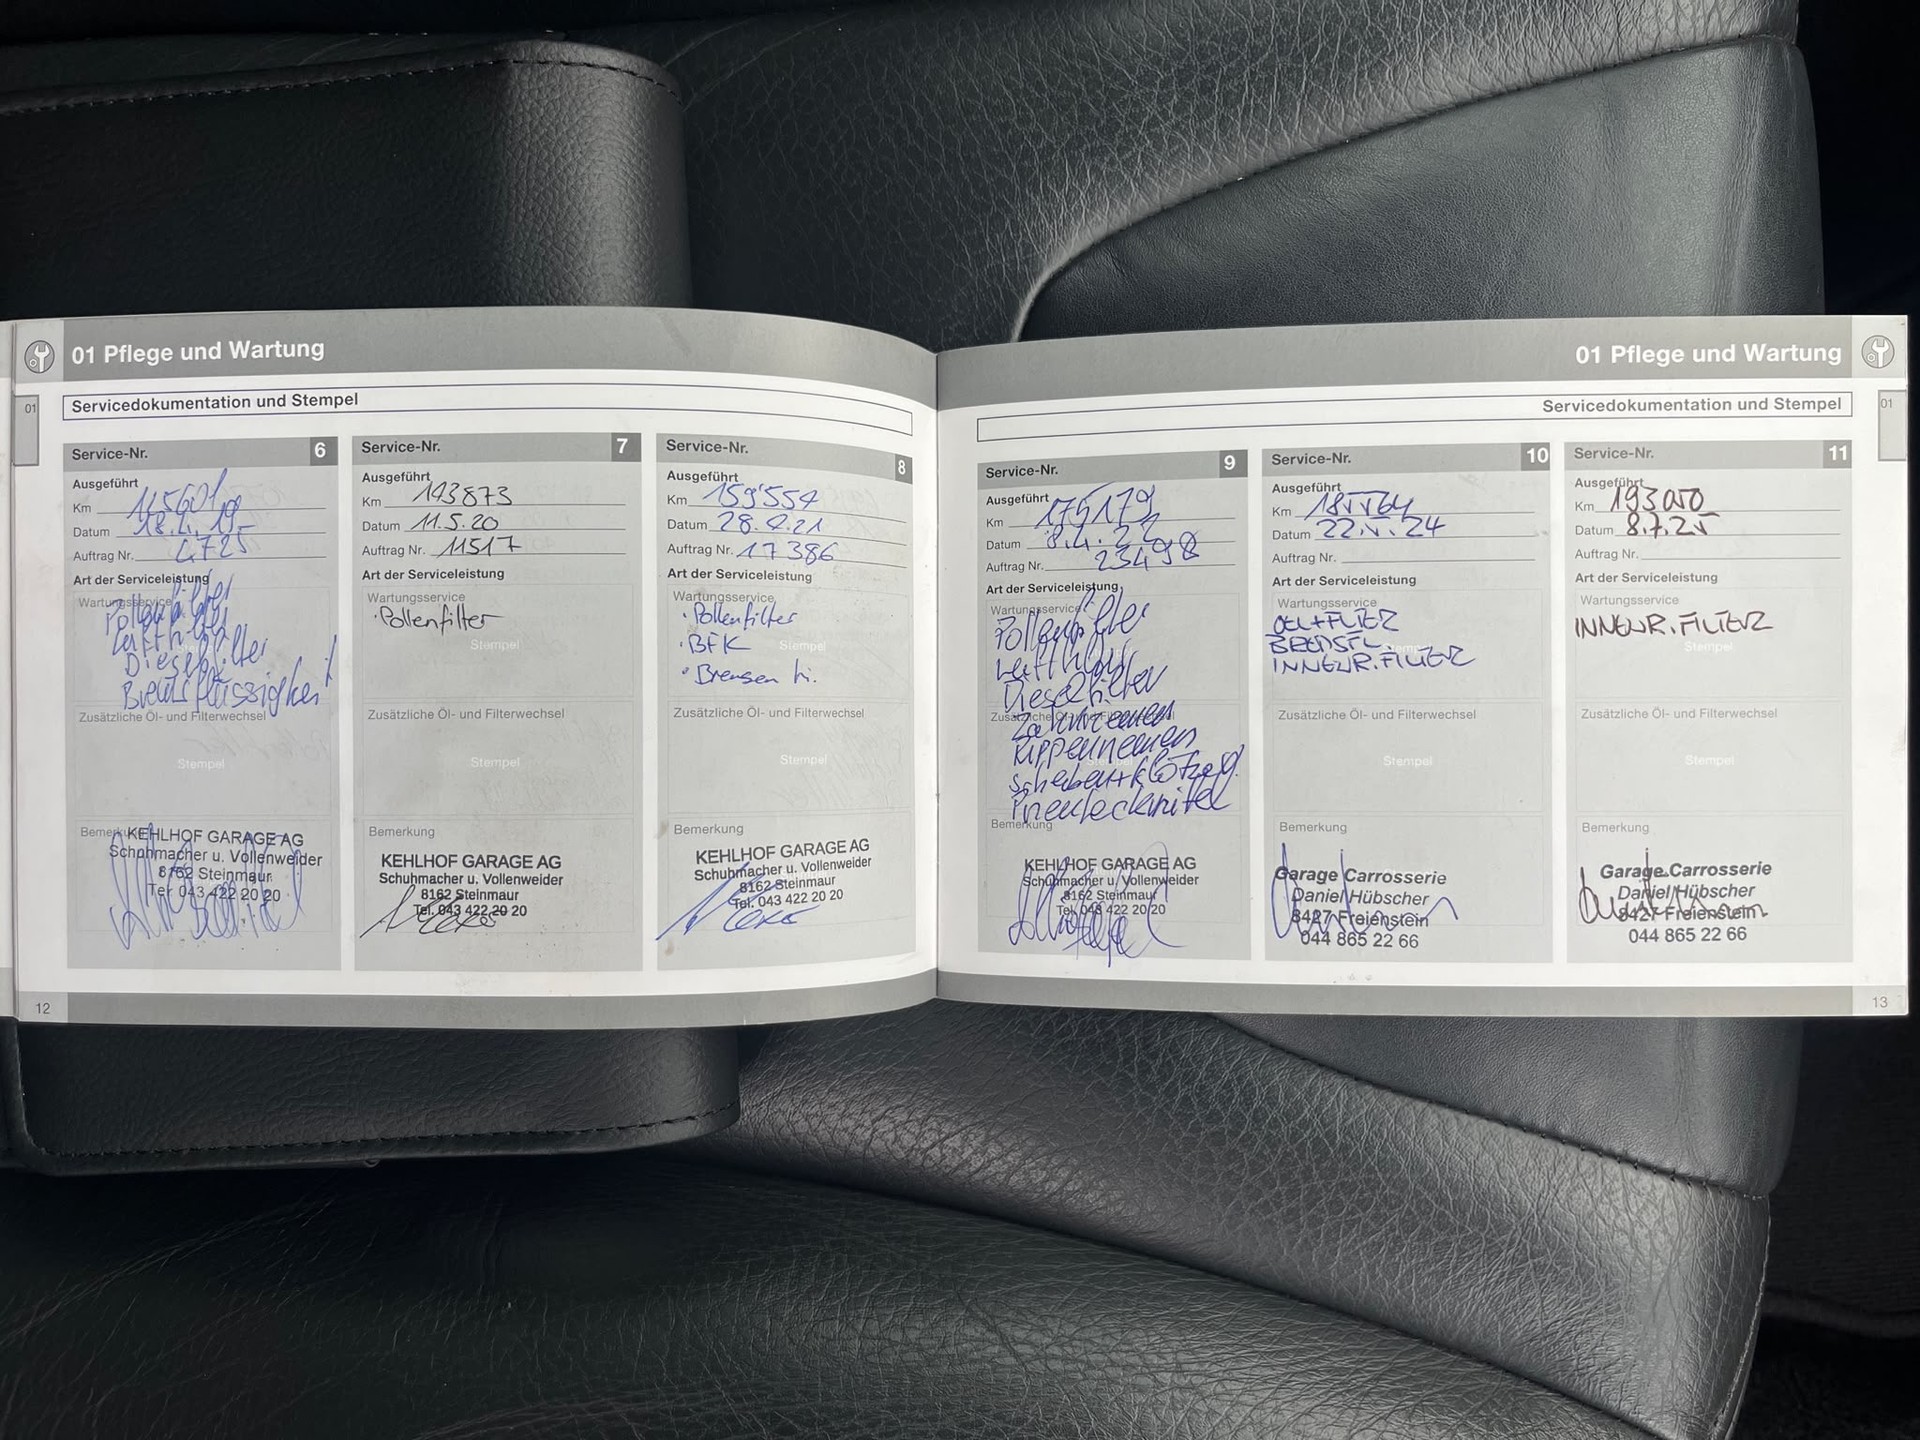 01 Pflege und Wartung
01
Servicedokumentation und Stempel
Service-Nr. 6
Ausgeführt
Km
Datum 18.2.19
Auftrag Nr. 2725
Art der Serviceleistung
Wartungsservice
Pollenfilter
Luftfilter
Dieselfilter
Bremsflüssigkeit
Zusätzliche Öl- und Filterwechsel
Stempel
Bemerkung
KEHLHOF GARAGE AG
Schuhmacher u. Vollenweider
8162 Steinmaur
Tel. 043 422 20 20
Service-Nr. 7
Ausgeführt
Km 143873
Datum 11.5.20
Auftrag Nr. 11517
Art der Serviceleistung
Wartungsservice
· Pollenfilter
Stempel
Zusätzliche Öl- und Filterwechsel
Stempel
Bemerkung
KEHLHOF GARAGE AG
Schuhmacher u. Vollenweider
8162 Steinmaur
Tel. 043 422 20 20
Service-Nr. 8
Ausgeführt
Km 159'554
Datum 28.4.21
Auftrag Nr. 17386
Art der Serviceleistung
Wartungsservice
· Pollenfilter
· BFK
Stempel
· Bremsen hi.
Zusätzliche Öl- und Filterwechsel
Stempel
Bemerkung
KEHLHOF GARAGE AG
Schuhmacher u. Vollenweider
8162 Steinmaur
Tel. 043 422 20 20
12
01 Pflege und Wartung
01
Servicedokumentation und Stempel
Service-Nr. 9
Ausgeführt
Km 175179
Datum 8.4.22
Auftrag Nr. 23498
Art der Serviceleistung
Wartungsservice
Pollenfilter
Luftfilter
Dieselfilter
Zusätzliche Öl- und Filterwechsel
Zahnriemen
Rippenriemen
Scheiben + Klötze
Bemerkung
KEHLHOF GARAGE AG
Schuhmacher u. Vollenweider
8162 Steinmaur
Tel. 043 422 20 20
Service-Nr. 10
Ausgeführt
Km 185564
Datum 22.5.24
Auftrag Nr.
Art der Serviceleistung
Wartungsservice
OEL+FILTER
BREMSFL.
INNENR.FILTER
Zusätzliche Öl- und Filterwechsel
Stempel
Bemerkung
Garage Carrosserie
Daniel Hübscher
8427 Freienstein
044 865 22 66
Service-Nr. 11
Ausgeführt
Km 193000
Datum 8.7.25
Auftrag Nr.
Art der Serviceleistung
Wartungsservice
INNENR.FILTER
Stempel
Zusätzliche Öl- und Filterwechsel
Stempel
Bemerkung
Garage Carrosserie
Daniel Hübscher
8427 Freienstein
044 865 22 66
13